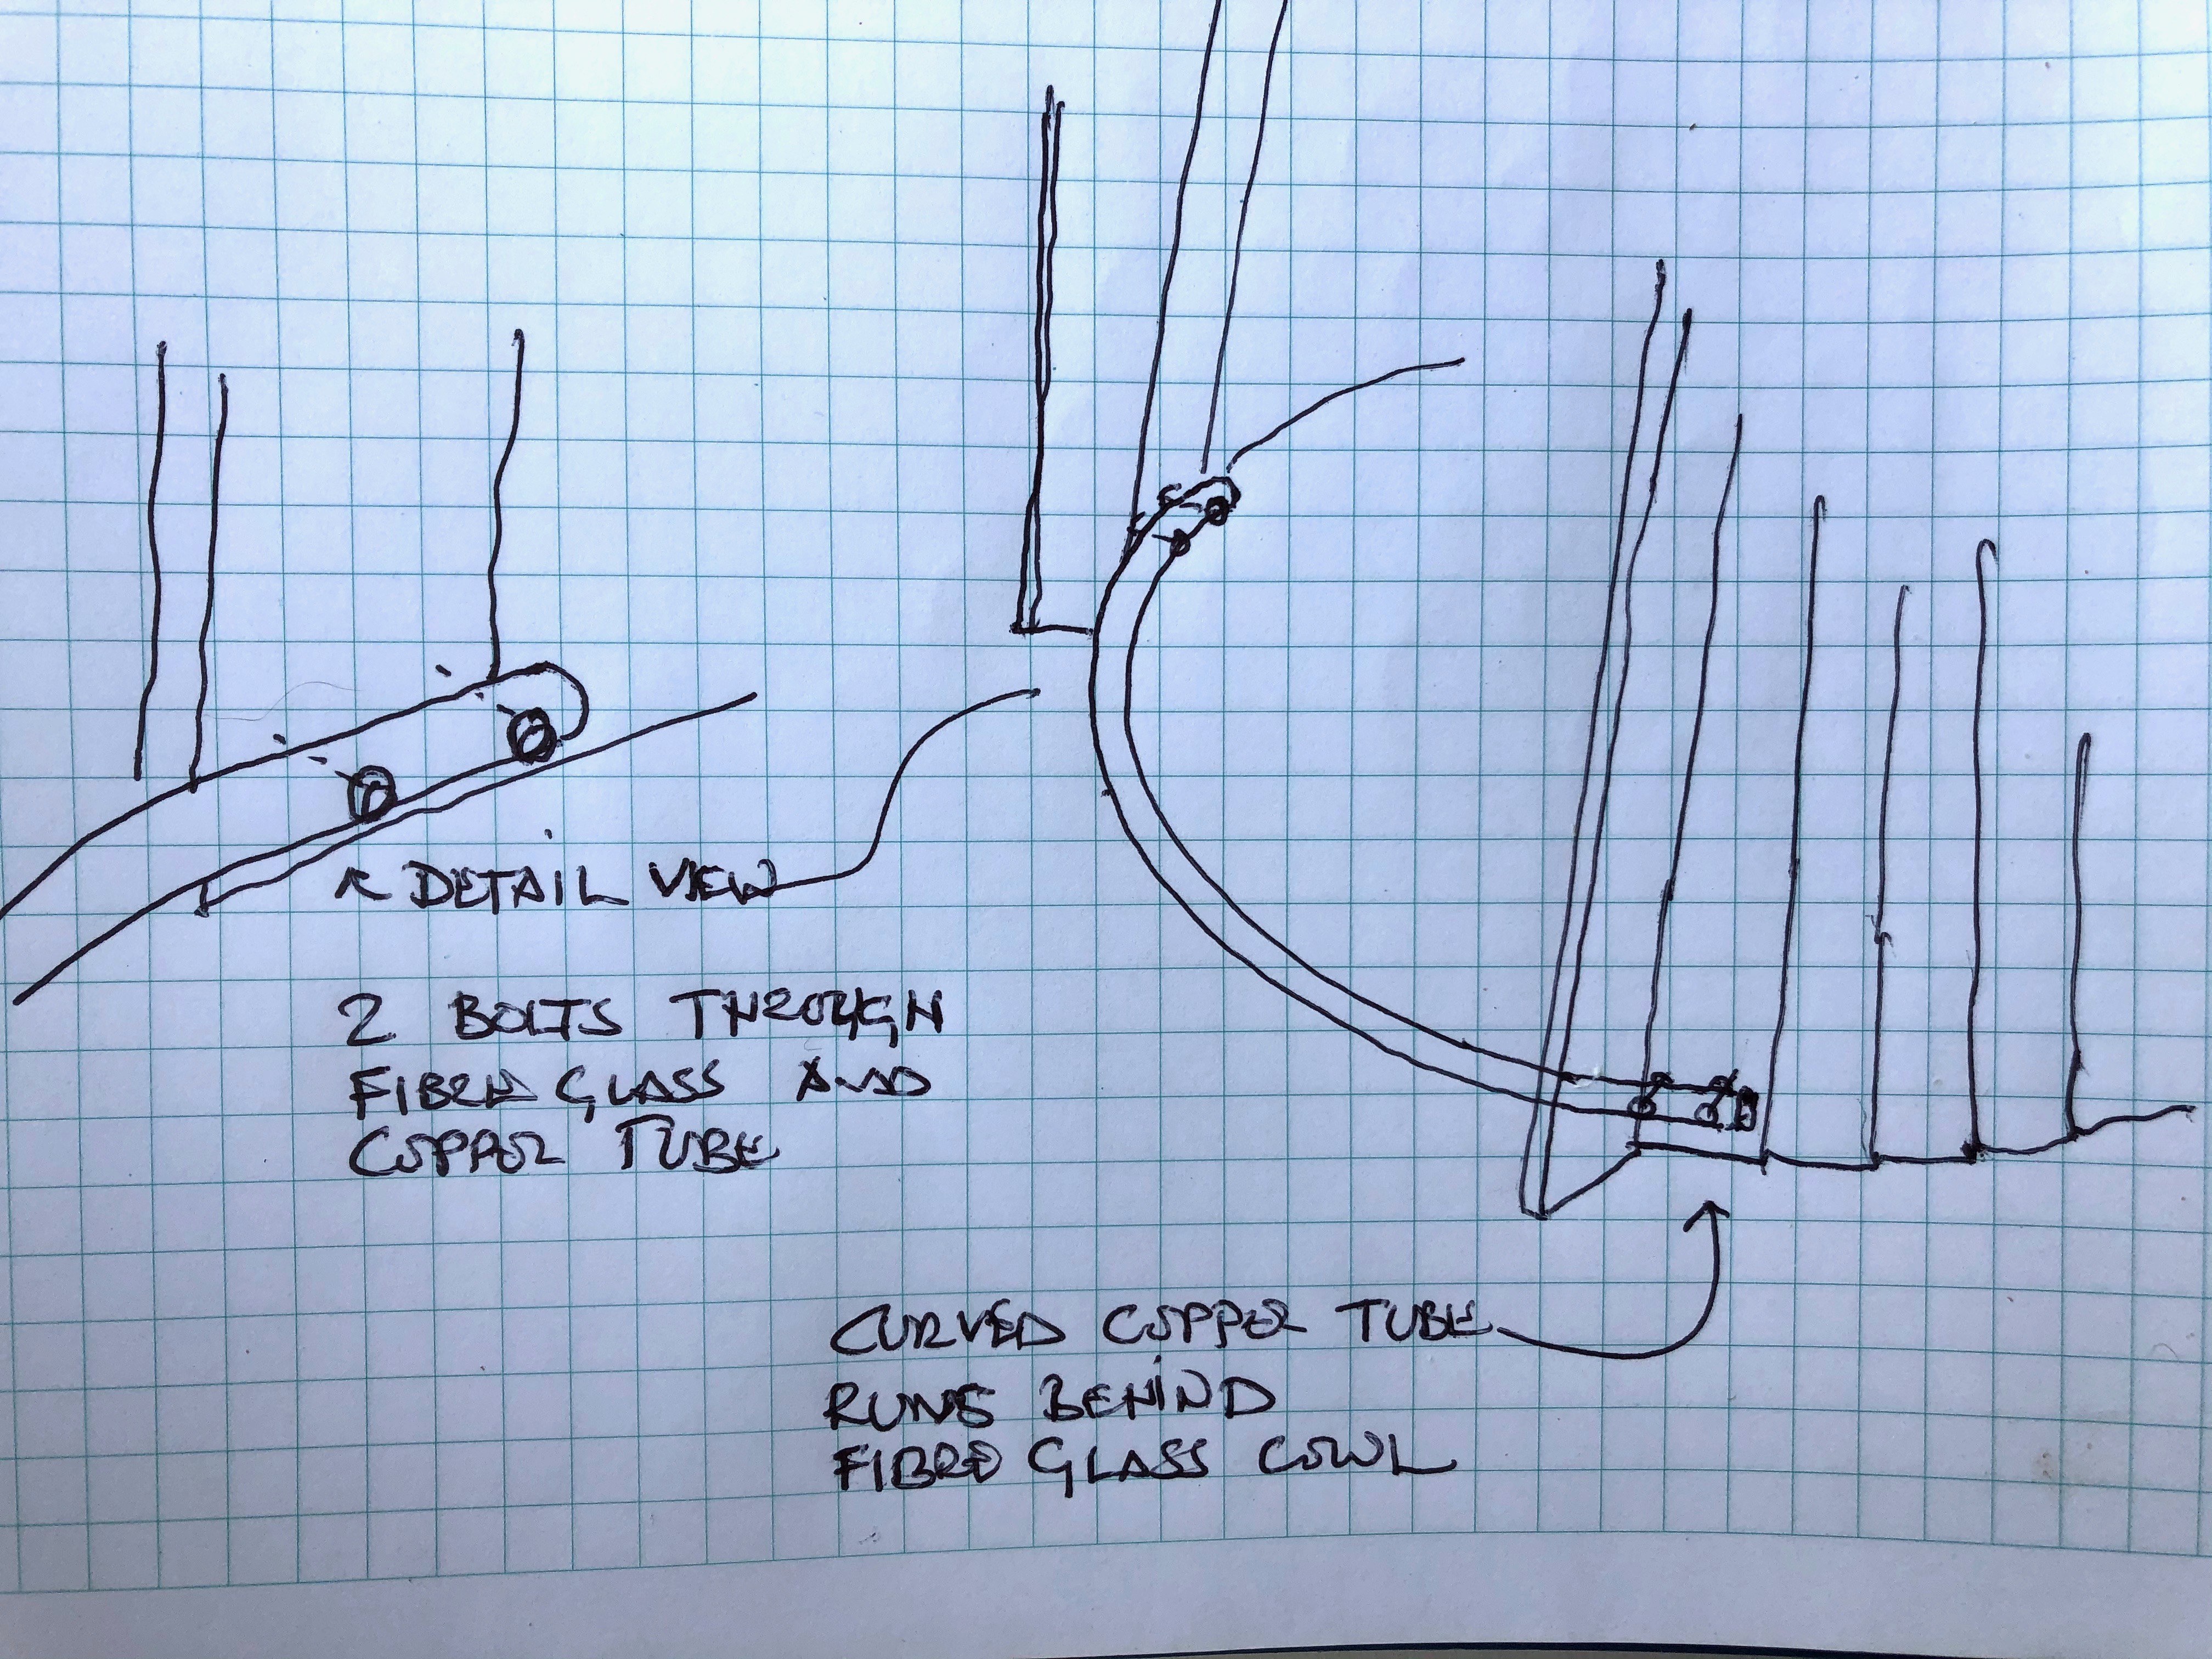 DETAIL VIEW
2 BOLTS THROUGH
FIBRE GLASS AND
COPPER TUBE
CURVED COPPER TUBE
RUNS BEHIND
FIBRE GLASS COWL